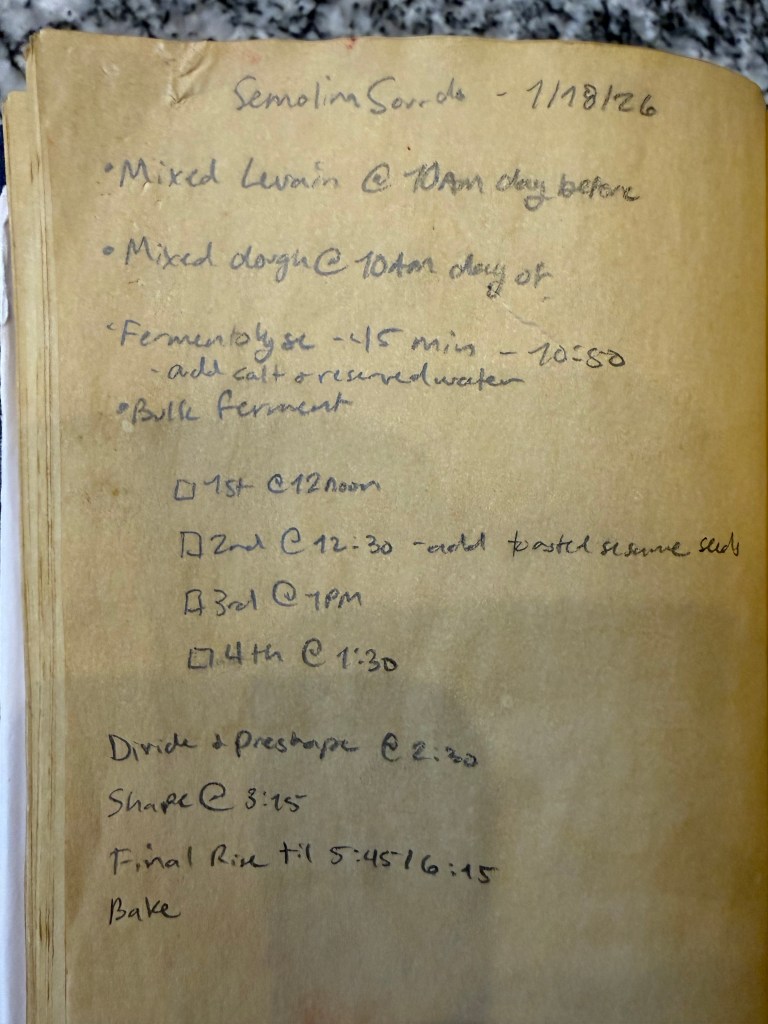 Semolina Sourdo - 1/18/26
• Mixed Levain @ 10AM day before
• Mixed dough @ 10AM day of
• Fermentolyse - 45 min - 10:50
- add salt & reserved water
• Bulk ferment
□ 1st @ 12 noon
□ 2nd @ 12:30 - add toasted sesame seeds
□ 3rd @ 1PM
□ 4th @ 1:30
Divide & Preshape @ 2:30
Shape @ 3:15
Final Rise til 5:45/6:15
Bake